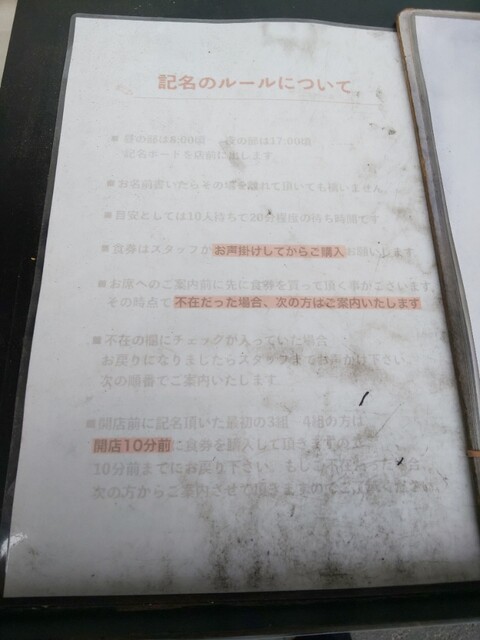 記名のルールについて
■ 昼の部は8:00頃～ 夜の部は17:00頃
記名ボードを店前に出します。
■ お名前書いたらその場を離れて頂いても構いません。
■ 目安としては10人待ちで20分程度の待ち時間です
■ 食券はスタッフが お声掛けしてからご購入 お願いします
■ お席へのご案内前に先に食券を買って頂く事がございます。
その時点で 不在だった場合、次の方はご案内いたします
■ 不在の欄にチェックが入っていた場合
お戻りになりましたらスタッフまでお声がけ下さい。
次の順番でご案内いたします
■ 開店前に記名頂いた最初の3組 4組の方は
開店10分前に食券を購入して頂きますので
10分前までにお戻り下さい。もしご不在だった場合
次の方からご案内させて頂きますのでご了承ください